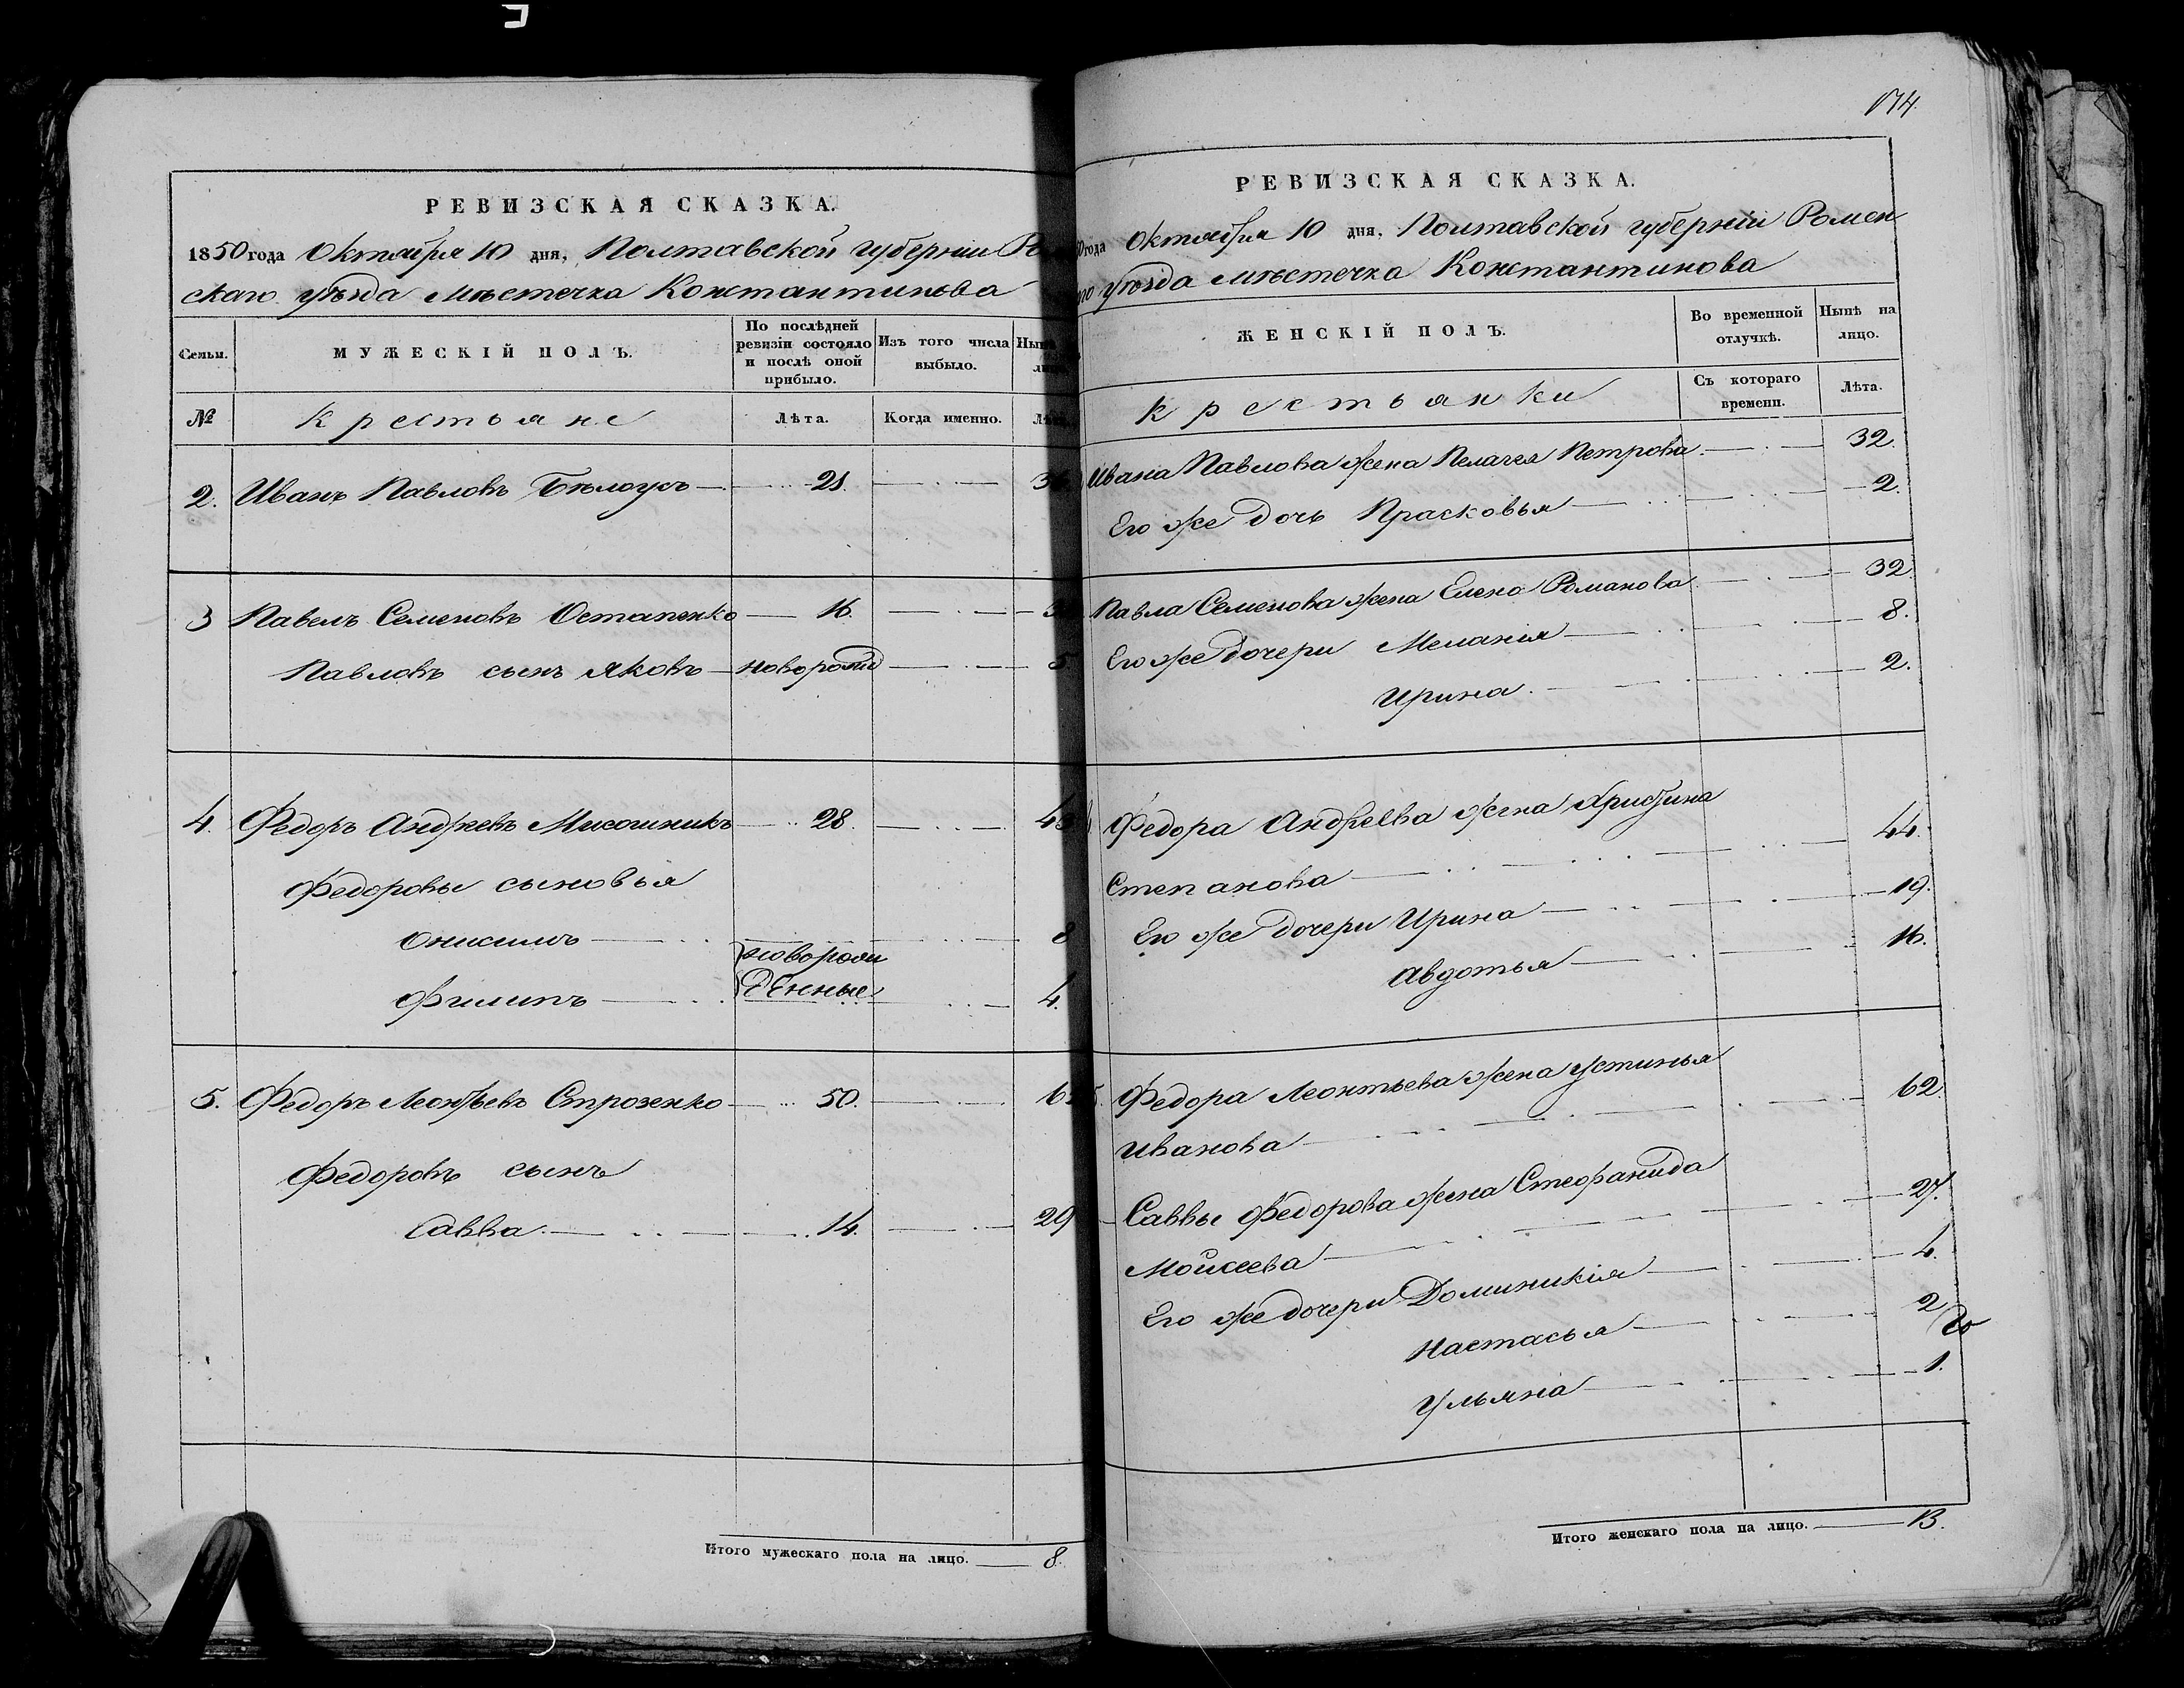 РЕВИЗСКАЯ СКАЗКА.
1850 года Октября 10 дня, Полтавской губернии
скаго уѣзда мѣстечка Константинова
Семьи.
МУЖЕСКІЙ ПОЛЪ.
По послѣдней ревизіи состояло и послѣ оной прибыло.
Изъ того числа выбыло.
№
Крестьяне
Лѣта.
Когда именно.
2. Иванъ Павловъ Бѣлоусъ 21.
3 Павелъ Семеновъ Остапенко 16.
Павловъ сынъ Яковъ новорожд 5
4. Федоръ Андреевъ 28.
Федоровы сыновья
Онисимъ 8
новорож
Филипъ денные 4.
5. Федоръ Леонтьевъ Строженко 50.
Федоровъ сынъ
Савва 14. 29
Итого мужескаго пола на лицо. 8.
174.
РЕВИЗСКАЯ СКАЗКА.
года Октября 10 дня, Полтавской губерніи Ромен
уѣзда мѣстечка Константинова
ЖЕНСКІЙ ПОЛЪ.
Во временной отлучкѣ.
Нынѣ на лицо.
Крестьянки
Съ котораго времени.
Лѣта.
Ивана Павлова жена Пелагея Петрова 32.
Его же дочь Прасковья 2.
Павла Семенова жена Елена Романова 32.
Его же дочери Меланія 8.
Ирина 2.
Федора Андреева жена Христина
Степанова 44.
Его же дочери Ирина 19.
Авдотья 16.
5. Федора Леонтьева жена Устинья
Иванова 62.
Саввы Федорова жена Стефанида
Моисеева 27.
Его же дочери Доминикія 4.
Настасья 2
Ульяна 1.
Итого женскаго пола на лицо. 13.